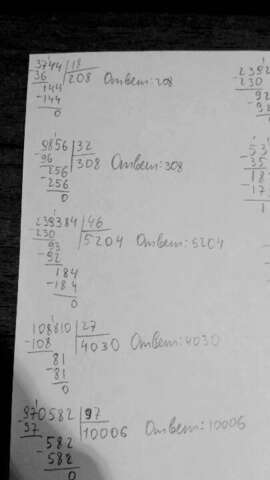 3744 | 18
36 | 208 Ответ: 208
144
-144
0
9856 | 32
-96 | 308 Ответ: 308
256
-256
0
239384 | 46
-230 | 5204 Ответ: 5204
93
-92
184
-184
0
108810 | 27
-108 | 4030 Ответ: 4030
81
-81
0
970582 | 97
-97 | 10006 Ответ: 10006
582
-582
0
2392
-230
92
53
-35
18
-17
1